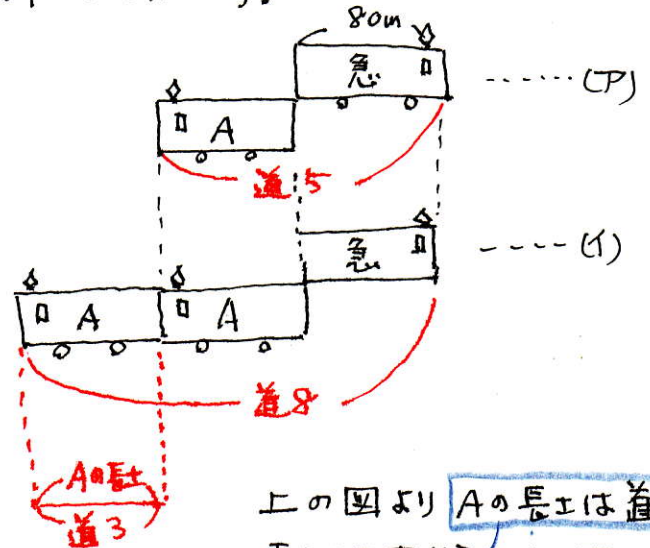 80m
急
A
‥‥‥(ア)
道5
急
----(イ)
A A
道8
Aの長さ
道3
上の図より Aの長さは道